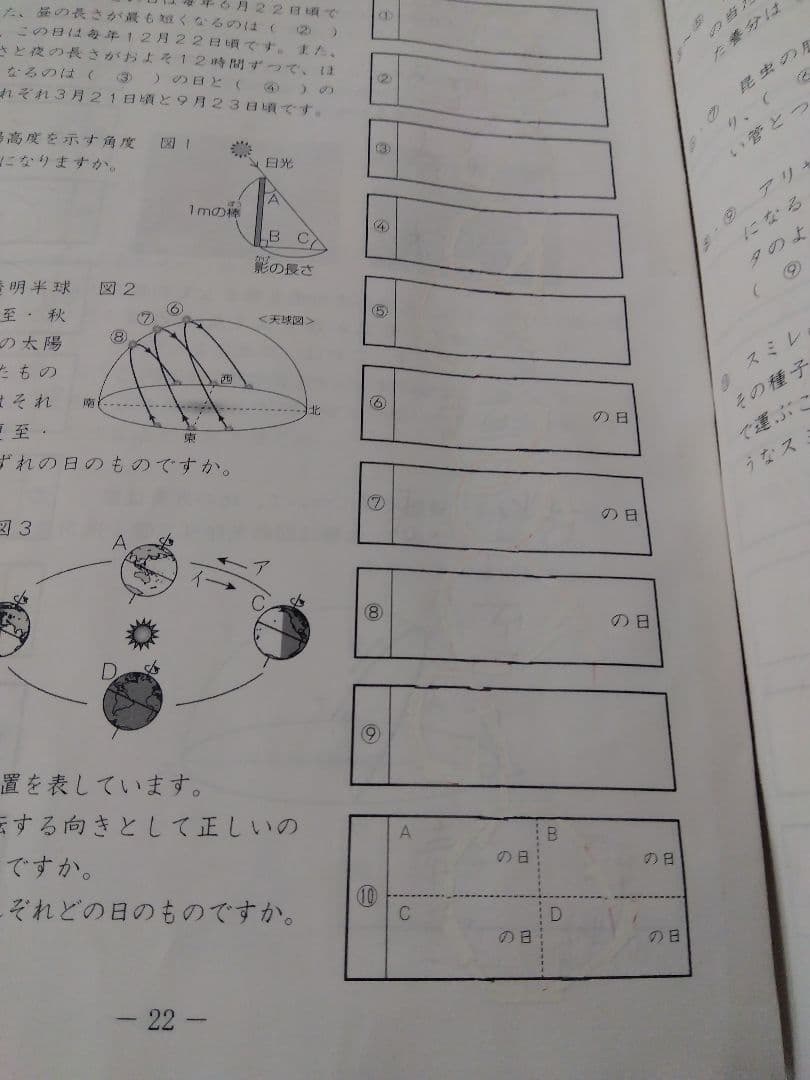 日は毎年6月22日頃で
た、昼の長さが最も短くなるのは（　②　）
、この日は毎年12月22日頃です。また、
さと夜の長さがおよそ12時間ずつで、ほ
なるのは（　③　）の日と（　④　）の
れぞれ3月21日頃と9月23日頃です。
高度を示す角度　図1
になりますか。
日光
1mの棒
ぼう
A
B
C
かげ
影の長さ
透明半球　図2
至・秋
の太陽
たもの
はそれ
夏至・
ずれの日のものですか。
⑥
⑦
⑧
＜天球図＞
西
南
北
東
図3
A
ア
イ
C
D
置を表しています。
転する向きとして正しいの
ですか。
れぞれどの日のものですか。
－22－
①
②
③
④
⑤
⑥　の日
⑦　の日
⑧　の日
⑨
⑩
A　の日
B　の日
C　の日
D　の日
の当
た養分は
⑦　昆虫の
り、（
い管とつ
⑨　アリ
になる
タのよ
（　⑨
スミレ
その種子
で運ぶこ
うなスミ